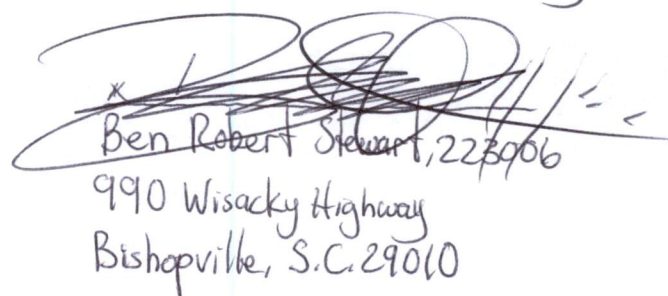 x
Ben Robert Stewart, 223906
990 Wisacky Highway
Bishopville, S.C. 29010